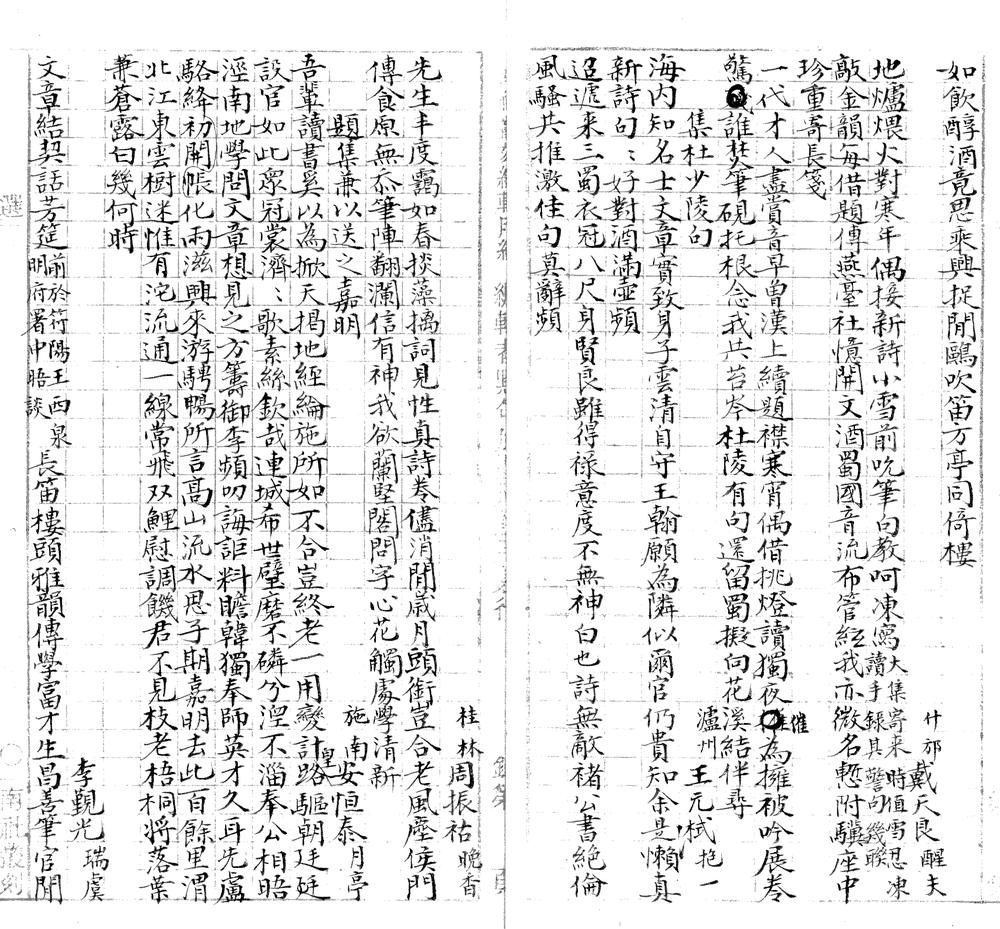 如飲醇酒竟思乘興捉閒鷗吹笛方亭同倚樓
什邡戴天良醒夫
地爐煨火對寒年偶接新詩小雪前吮筆向教呵凍寫大集寄來時值雪思凍讀手錄其警句幾聯
敲金韻每借題傳燕臺社憶開文酒蜀國音流布管絃我亦微名慙附驥座中
珍重寄長箋
一代才人盡賞音早曾漢上續題襟寒宵偶借挑燈讀獨夜催為擁被吟展卷
驚誰焚筆硯托根念我共苔岑杜陵有句還留蜀擬向花溪結伴尋
集杜少陵句
瀘州王元栻抱一
海內知名士文章實致身子雲清自守王翰願為隣似爾官仍貴知余是懶真
新詩句〻好對酒滿壺頻
迢遞來三蜀衣冠八尺身賢良雖得祿意度不無神白也詩無敵褚公書絕倫
風騷共推激佳句莫辭頻
桂林周振祜晚香
先生丰度靄如春掞藻摛詞見性真詩卷儘消閒歲月頭銜豈合老風塵侯門
傳食原無忝筆陣翻瀾信有神我欲蘭堅閣問字心花觸處學清新
題集兼以送之嘉明
施南安恒泰月亭
吾輩讀書奚以為掀天揭地經綸施所如不合豈終老一用變計路驅朝廷廷
設官如此眾冠裳濟〻歌素絲欽哉連城希世璧磨不磷兮湼不淄奉公相晤
涇南地學問文章想見之方籌御李頻叨誨詎料瞻韓獨奉師英才久耳先盧
駱絳初開帳化雨滋興來游騁暢所言高山流水思子期嘉明去此百餘里渭
北江東雲樹迷惟有沱流通一線常飛双鯉慰調饑君不見枝老梧桐將落葉
蒹蒼露白幾何時
李觀光瑞虞
文章結契話芳筵前於符陽王西泉明府署中晤談長笛樓頭雅韻傳學富才生昌善筆官閒